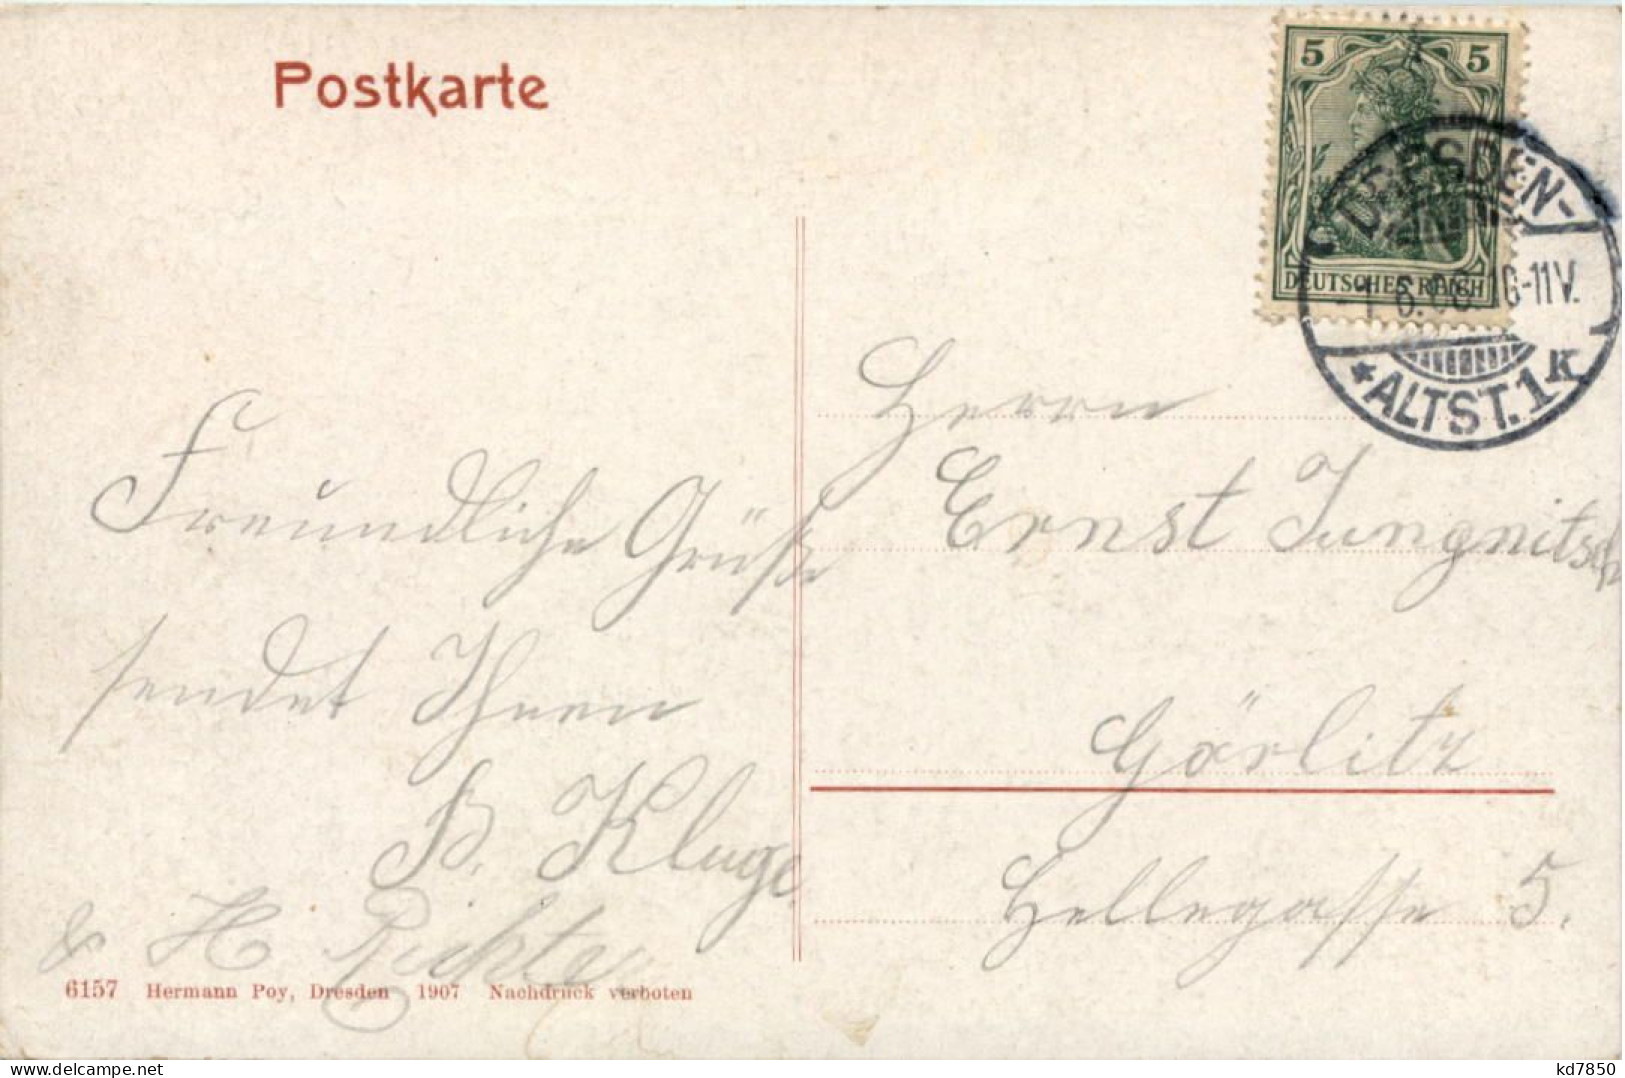 Postkarte
5 5
DEUTSCHES REICH
DRESDEN-
10-11V.
*ALTST.1 K
Freundliche Grüße
sendet Ihnen
B. Kluge.
& H Richter
Herrn
Ernst Jungnitsch
Görlitz
Hellegasse 5.
6157 Hermann Poy, Dresden 1907 Nachdruck verboten
delcampe.net
kd7850